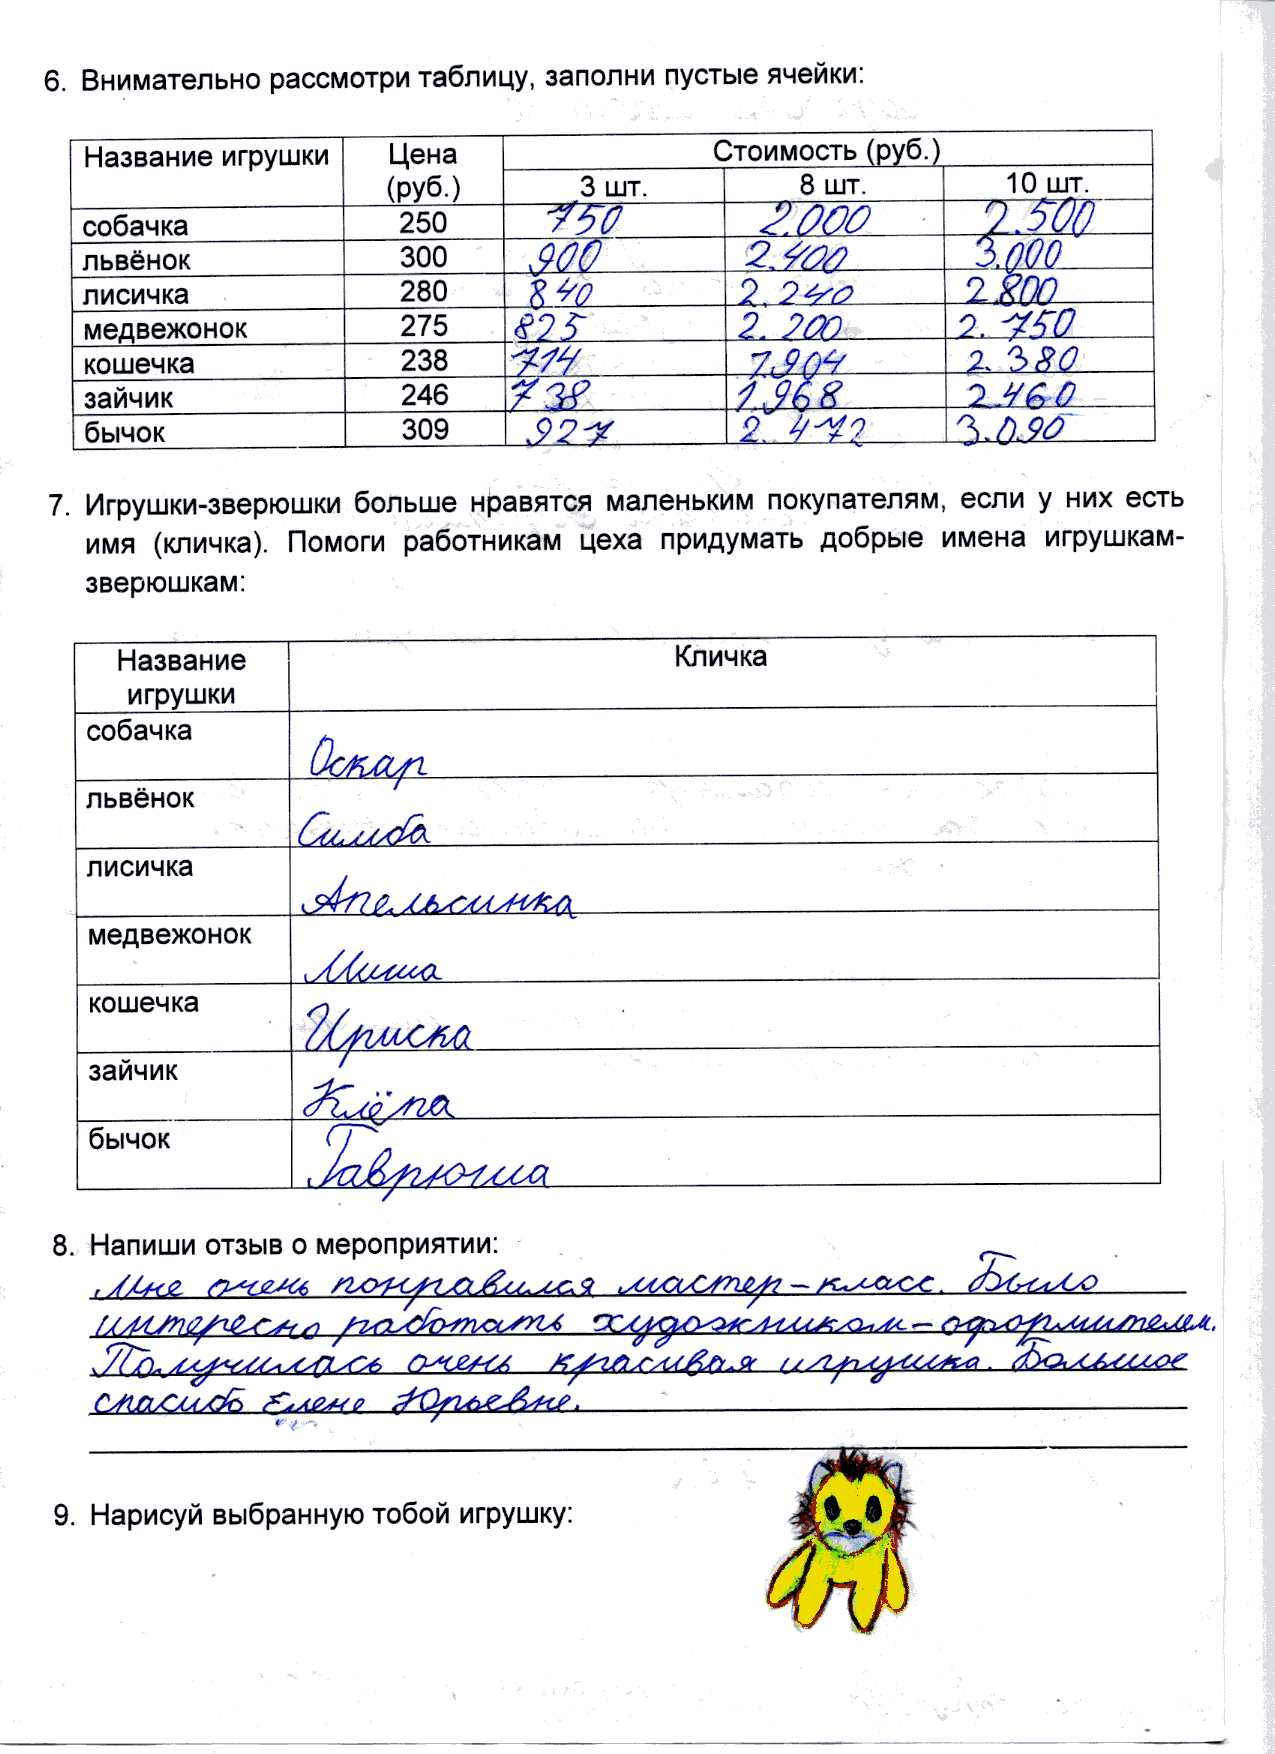 6. Внимательно рассмотри таблицу, заполни пустые ячейки:
Название игрушки Цена (руб.) Стоимость (руб.)
3 шт. 8 шт. 10 шт.
собачка 250 750 2.000 2.500
львёнок 300 900 2.400 3.000
лисичка 280 840 2.240 2.800
медвежонок 275 825 2.200 2.750
кошечка 238 714 1.904 2.380
зайчик 246 738 1.968 2.460
бычок 309 927 2.472 3.090
7. Игрушки-зверюшки больше нравятся маленьким покупателям, если у них есть
имя (кличка). Помоги работникам цеха придумать добрые имена игрушкам-
зверюшкам:
Название игрушки Кличка
собачка Оскар
львёнок Симба
лисичка Апельсинка
медвежонок Миша
кошечка Ириска
зайчик Клёпа
бычок Гаврюша
8. Напиши отзыв о мероприятии:
Мне очень понравился мастер-класс. Было
интересно работать художником-оформителем.
Получилась очень красивая игрушка. Большое
спасибо Елене Юрьевне.
9. Нарисуй выбранную тобой игрушку: